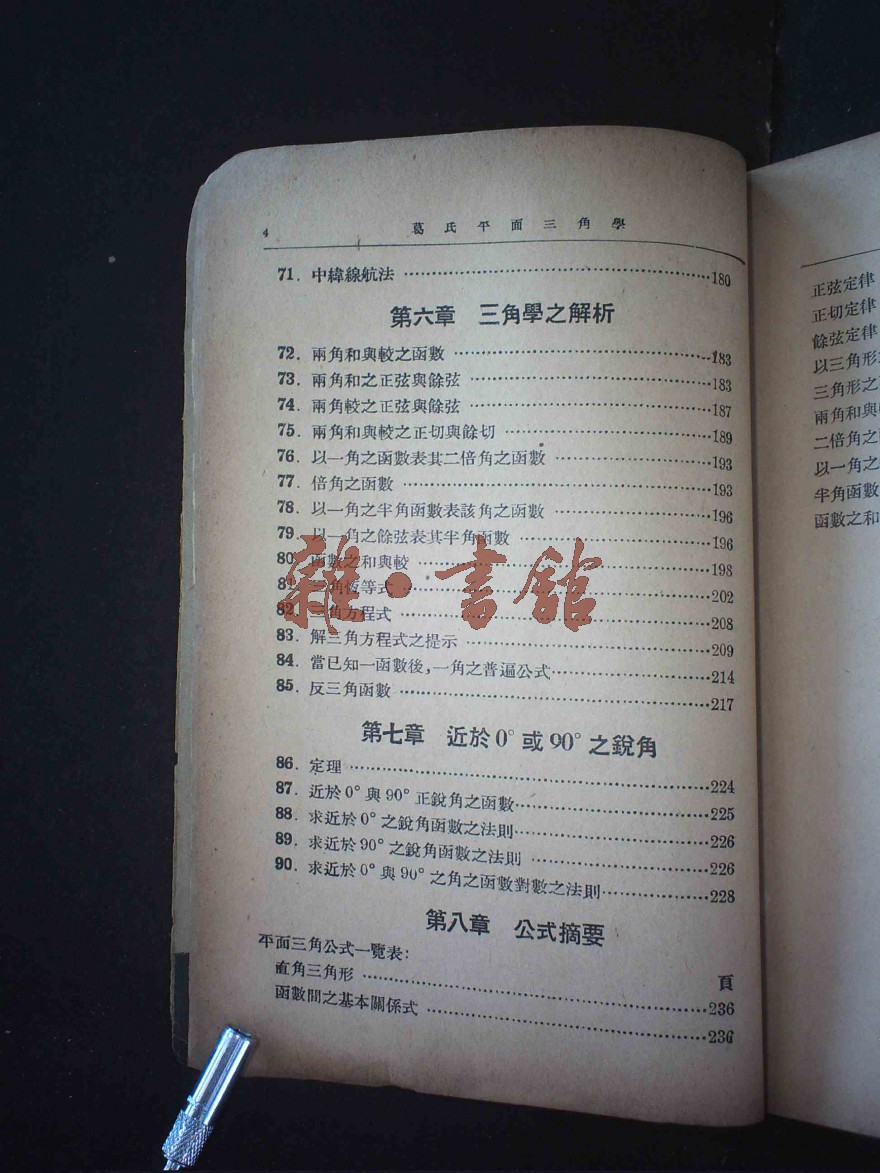 4 葛氏平面三角學
71. 中緯線航法 ……180
第六章 三角學之解析
72. 兩角和與較之函數 ……183
73. 兩角和之正弦與餘弦 ……183
74. 兩角較之正弦與餘弦 ……187
75. 兩角和與較之正切與餘切 ……189
76. 以一角之函數表其二倍角之函數 ……193
77. 倍角之函數 ……193
78. 以一角之半角函數表該角之函數 ……196
79. 以一角之餘弦表其半角函數 ……196
80. 函數之和與較 ……198
81. 三角恆等式 ……202
82. 三角方程式 ……208
83. 解三角方程式之提示 ……209
84. 當已知一函數後,一角之普遍公式……214
85. 反三角函數 ……217
第七章 近於0°或90°之銳角
86. 定理 ……224
87. 近於0°與90°正銳角之函數……225
88. 求近於0°之銳角函數之法則……226
89. 求近於90°之銳角函數之法則 ……226
90. 求近於0°與90°之角之函數對數之法則……228
第八章 公式摘要
平面三角公式一覽表:
頁
直角三角形 ……236
函數間之基本關係式 ……236
雜·書館
正弦定律
正切定律
餘弦定律
以三角形
三角形之
兩角和與
二倍角之
以一角之
半角函數
函數之和